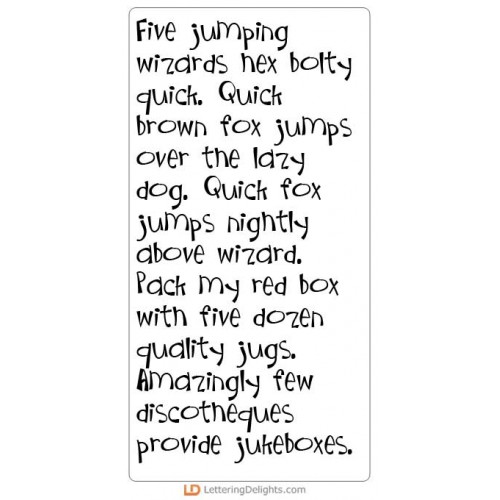 Five jumping
wizards hex bolty
quick. Quick
brown fox jumps
over the lazy
dog. Quick fox
jumps nightly
above wizard.
Pack my red box
with five dozen
quality jugs.
Amazingly few
discotheques
provide jukeboxes.
LD LetteringDelights.com